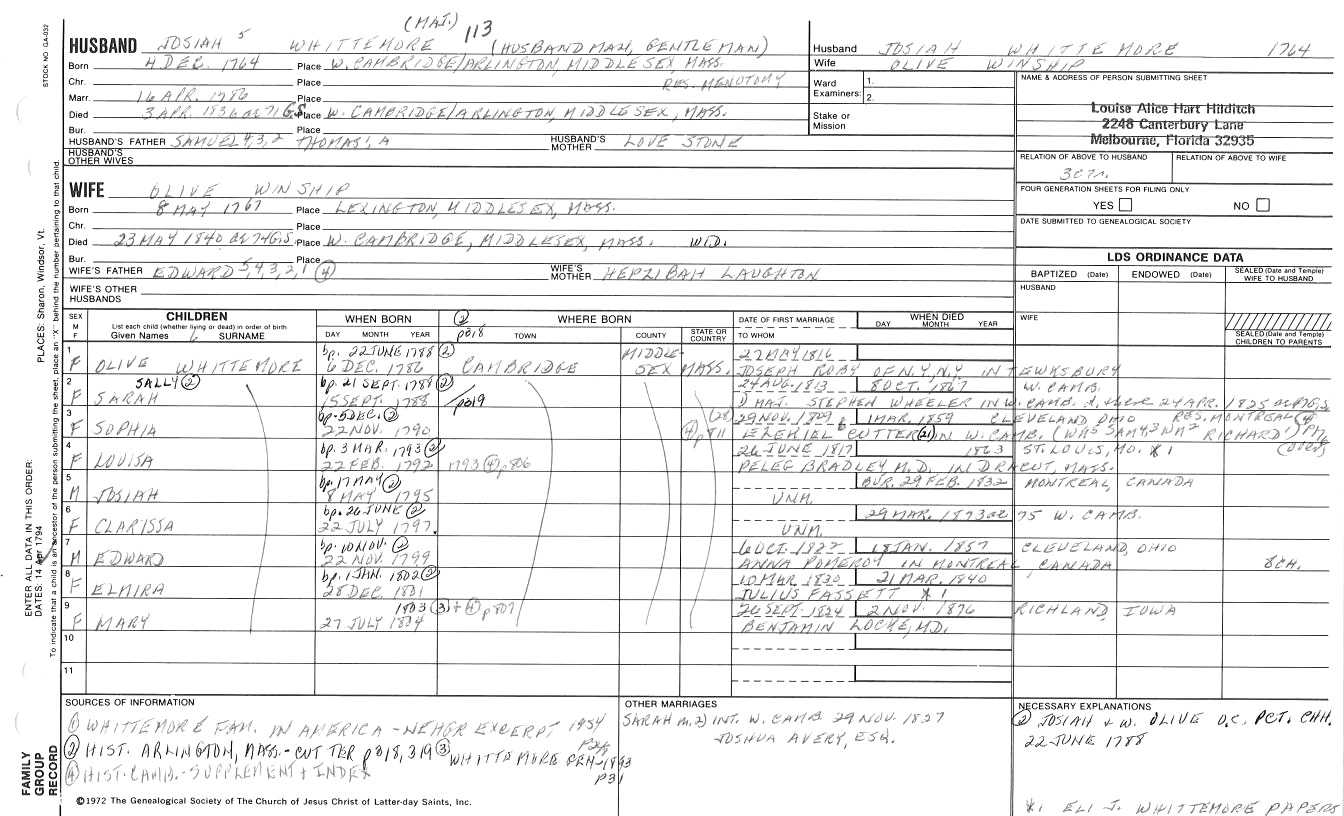 (MAJ.) 113
STOCK NO. GA-032
HUSBAND JOSIAH 5 WHITTEMORE (HUSBANDMAN, GENTLEMAN)
Born 4 DEC. 1764 Place W. CAMBRIDGE/ARLINGTON, MIDDLESEX MASS.
Chr. Place RES. MENOTOMY
Marr. 16 APR. 1786 Place
Died 3 APR. 1836 ae 71 G.S. Place W. CAMBRIDGE/ARLINGTON, MIDDLESEX, MASS.
Bur. Place
HUSBAND'S FATHER SAMUEL 4,3,2 THOMAS 1, A HUSBAND'S MOTHER LOVE STONE
HUSBAND'S OTHER WIVES
WIFE OLIVE WINSHIP
Born 8 MAY 1767 Place LEXINGTON, MIDDLESEX, MASS.
Chr. Place
Died 23 MAY 1840 ae 74 G.S. Place W. CAMBRIDGE, MIDDLESEX, MASS. WID.
Bur. Place
WIFE'S FATHER EDWARD 5,4,3,2,1 (4) WIFE'S MOTHER HEPZIBAH LAUGHTON
WIFE'S OTHER HUSBANDS
Husband JOSIAH WHITTEMORE 1764
Wife OLIVE WINSHIP
Ward Examiners: 1. 2.
Stake or Mission
NAME & ADDRESS OF PERSON SUBMITTING SHEET
Louise Alice Hart Hilditch
2248 Canterbury Lane
Melbourne, Florida 32935
RELATION OF ABOVE TO HUSBAND RELATION OF ABOVE TO WIFE
FOUR GENERATION SHEETS FOR FILING ONLY
YES NO
DATE SUBMITTED TO GENEALOGICAL SOCIETY
LDS ORDINANCE DATA
BAPTIZED (Date) ENDOWED (Date) SEALED (Date and Temple) WIFE TO HUSBAND
HUSBAND
WIFE
SEALED (Date and Temple) CHILDREN TO PARENTS
SEX M F
CHILDREN
List each child (whether living or dead) in order of birth
Given Names 6 SURNAME
WHEN BORN DAY MONTH YEAR
(2) p318 WHERE BORN TOWN COUNTY STATE OR COUNTRY
DATE OF FIRST MARRIAGE TO WHOM
WHEN DIED DAY MONTH YEAR
1 bp. 22 JUNE 1788 (2) MIDDLE- 27 MAY 1816
F OLIVE WHITTEMORE 6 DEC. 1786 CAMBRIDGE SEX MASS. JOSEPH ROBY OF N.Y., N.Y. IN TEWKSBURY
2 SALLY (2) bp. 21 SEPT. 1788 (2) 24 AUG. 1813 8 OCT. 1867 W. CAMB.
F SARAH 15 SEPT. 1788 p319 1) MAJ. STEPHEN WHEELER IN W. CAMB. 24 APR. 1825
3 bp. 5 DEC. (2) (28) 29 NOV. 1809 1 MAR. 1859 CLEVELAND OHIO RES. MONTREAL (4)
F SOPHIA 22 NOV. 1790 (4) p811 EZEKIEL 6 CUTTER (2) IN W. CAMB. (WM 5 SAM 4,3 WM 2 RICHARD 1)
4 bp. 3 MAR. 1793 (2) 26 JUNE 1817 1863 ST. LOUIS, MO. *1 (over)
F LOUISA 22 FEB. 1792 1793 (4) p806 PELEG BRADLEY M.D. IN DRACUT, MASS.
5 bp. 17 MAY (2) BUR. 29 FEB. 1832 MONTREAL, CANADA
M JOSIAH 8 MAY 1795 UNM.
6 bp. 26 JUNE (2) 29 MAR. 1873 ae 75 W. CAMB.
F CLARISSA 22 JULY 1797. UNM.
7 bp. 10 NOV. (2) 6 OCT. 1822 18 JAN. 1857 CLEVELAND, OHIO
M EDWARD 22 NOV. 1799 ANNA POMEROY IN MONTREAL, CANADA 8 CH.
8 bp. 1 JAN. 1802 (2) 10 MAR 1830 21 MAR. 1840
F ELMIRA 28 DEC. 1801 JULIUS FASSETT *1
9 1803 (3) + (4) p807 26 SEPT. 1824 2 NOV. 1876 RICHLAND, IOWA
F MARY 27 JULY 1804 BENJAMIN LOCKE, M.D.
10
11
SOURCES OF INFORMATION
(1) WHITTEMORE FAM. IN AMERICA - NEHGR EXCERPT 1954 p26
(2) HIST. ARLINGTON, MASS. - CUTTER p318, 319 (3) WHITTEMORE GEN - 1893 p31
(4) HIST. CAMB. - SUPPLEMENT + INDEX
OTHER MARRIAGES
SARAH m. 2) INT. W. CAMB 29 NOV. 1827
JOSHUA AVERY, ESQ.
NECESSARY EXPLANATIONS
(2) JOSIAH + W. OLIVE O.C. PCT. CHH.
22 JUNE 1788
*1 ELI J. WHITTEMORE PAPERS
©1972 The Genealogical Society of The Church of Jesus Christ of Latter-day Saints, Inc.
FAMILY GROUP RECORD
ENTER ALL DATA IN THIS ORDER:
DATES: 14 Apr 1794
PLACES: Sharon, Windsor, Vt.
To indicate that a child is an ancestor of the person submitting the sheet, place an "X" behind the number pertaining to that child.